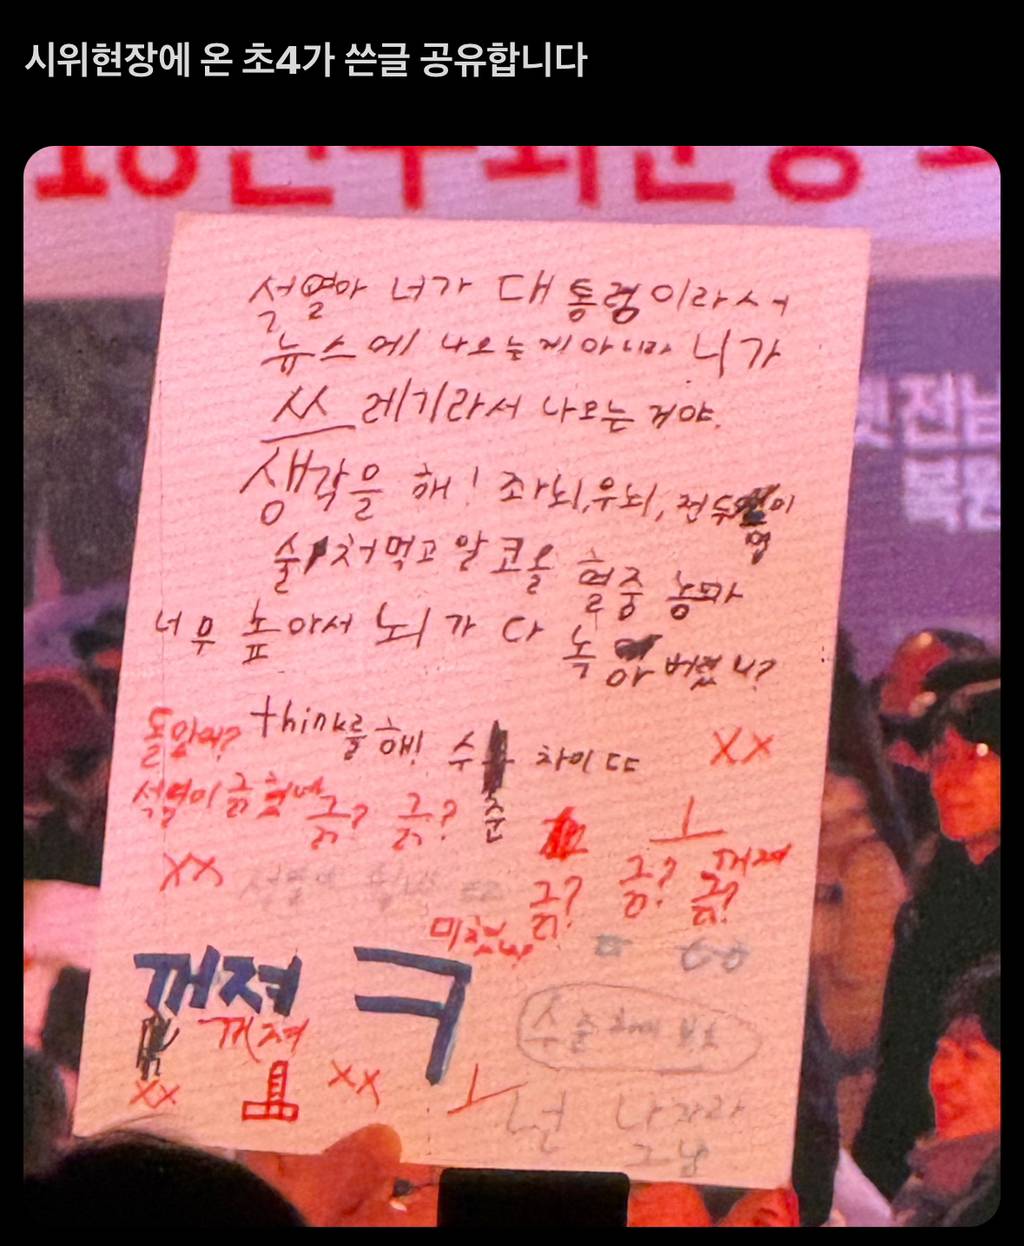 시위현장에 온 초4가 쓴글 공유합니다
석열아 너가 대통령이라서
뉴스에 나오는게 아니라 니가
쓰레기라서 나오는 거야.
생각을 해! 좌뇌,우뇌, 전두엽이
술 처먹고 알코올 혈중 농도가
너무 높아서 뇌가 다 녹아버렸니?
think를 해! 수준 차이 ㄸㄷ
XX
돌았어?
석열이 긁혔네
긁? 긁?
XX
ㅗ
긁? 긁? 긁?
꺼져
미쳤냐
꺼져 ㅋ
꺼져
XX
XX
ㅗ
수준 차이 보소
넌 나가라
그냥